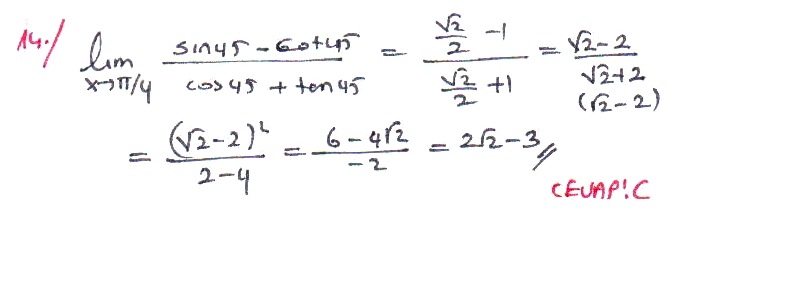 14./ lim x→π/4 (sin45 - cot45)/(cos45 + tan45) = (√2/2 - 1)/(√2/2 + 1) = (√2 - 2)/(√2 + 2) (√2 - 2)
= (√2 - 2)²/(2 - 4) = (6 - 4√2)/(-2) = 2√2 - 3 //
CEVAP: C